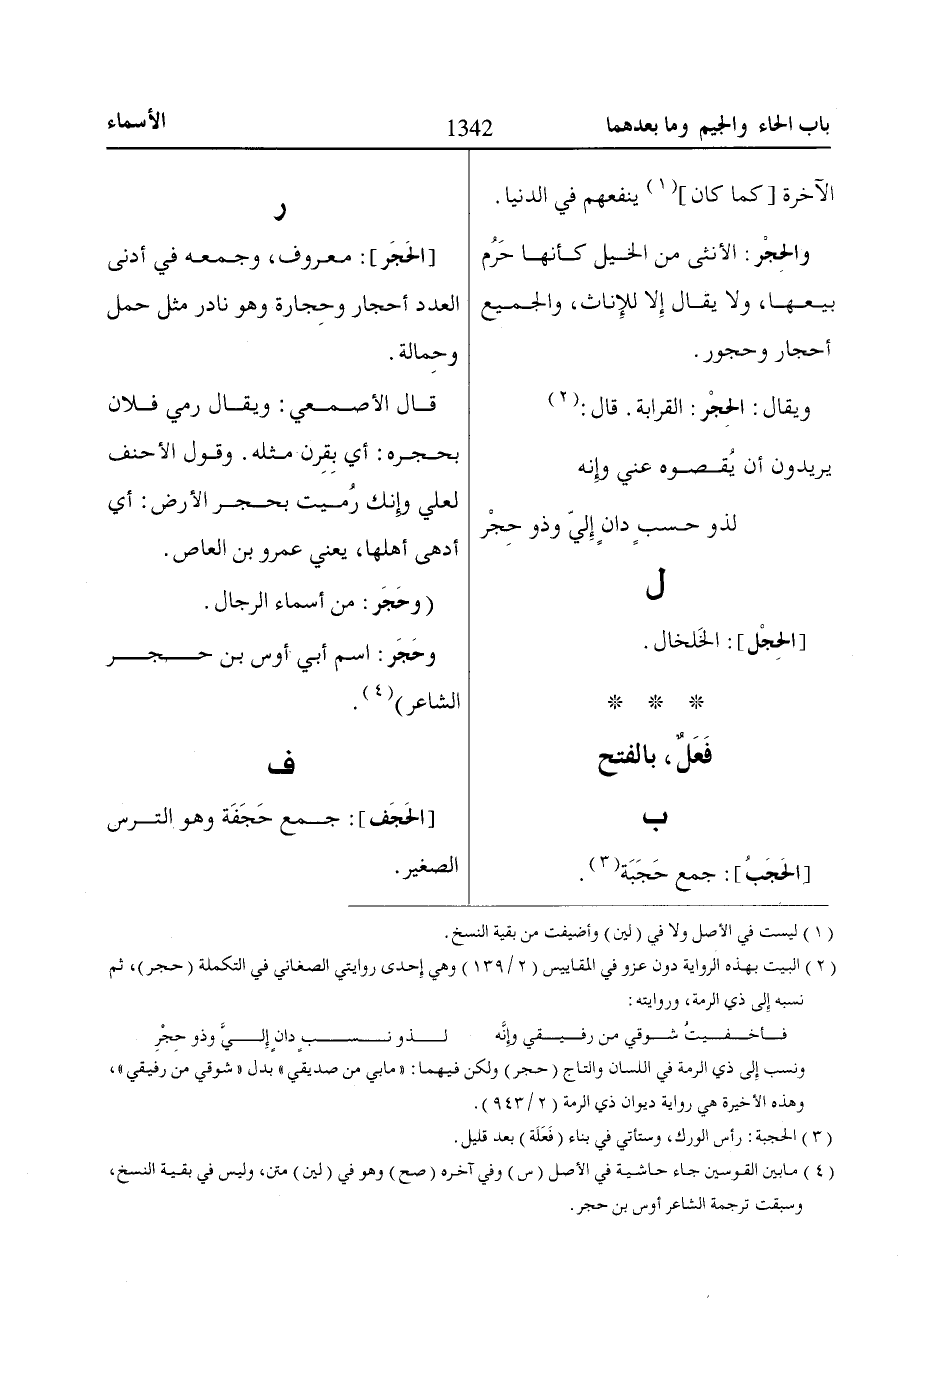 باب الحاء والجيم وما بعدهما
1342
الأسماء
الآخرة [كما كان](١) ينفعهم في الدنيا.
والحِجْر: الأنثى من الخيل كأنها حَرُم
بيعها، ولا يقال إلا للإناث، والجميع
أحجار وحجور.
ويقال: الحِجْر: القرابة. قال:(٢)
يريدون أن يُقصوه عني وإنه
لذو حسبٍ دانٍ إليّ وذو حِجْر
ل
[الحِجْل]: الخَلخال.
* * *
فَعَلٌ، بالفتح
ب
[الحَجَبُ]: جمع حَجَبَة(٣).
ر
[الحَجَر]: معروف، وجمعه في أدنى
العدد أحجار وحِجارة وهو نادر مثل حمل
وحِمالة.
قال الأصمعي: ويقال رمي فلان
بحجره: أي بِقِرن مثله. وقول الأحنف
لعلي وإنك رُميت بحجر الأرض: أي
أدهى أهلها، يعني عمرو بن العاص.
(وحَجَر: من أسماء الرجال.
وحَجَر: اسم أبي أوس بن حجر
الشاعر)(٤).
ف
[الحَجَف]: جمع حَجَفَة وهو الترس
الصغير.
(١) ليست في الأصل ولا في (لين) وأضيفت من بقية النسخ.
(٢) البيت بهذه الرواية دون عزو في المقاييس (٢/ ١٣٩) وهي إحدى روايتي الصغاني في التكملة (حجر)، ثم
نسبه إلى ذي الرمة، وروايته:
فأخفيتُ شوقي من رفيقي وإنَّه لذو نسبٍ دانٍ إليَّ وذو حِجْرِ
ونسب إلى ذي الرمة في اللسان والتاج (حجر) ولكن فيهما: «مابي من صديقي» بدل «شوقي من رفيقي»،
وهذه الأخيرة هي رواية ديوان ذي الرمة (٢/ ٩٤٣).
(٣) الحجبة: رأس الورك، وستأتي في بناء (فَعَلَة) بعد قليل.
(٤) مابين القوسين جاء حاشية في الأصل (س) وفي آخره (صح) وهو في (لين) متن، وليس في بقية النسخ،
وسبقت ترجمة الشاعر أوس بن حجر.